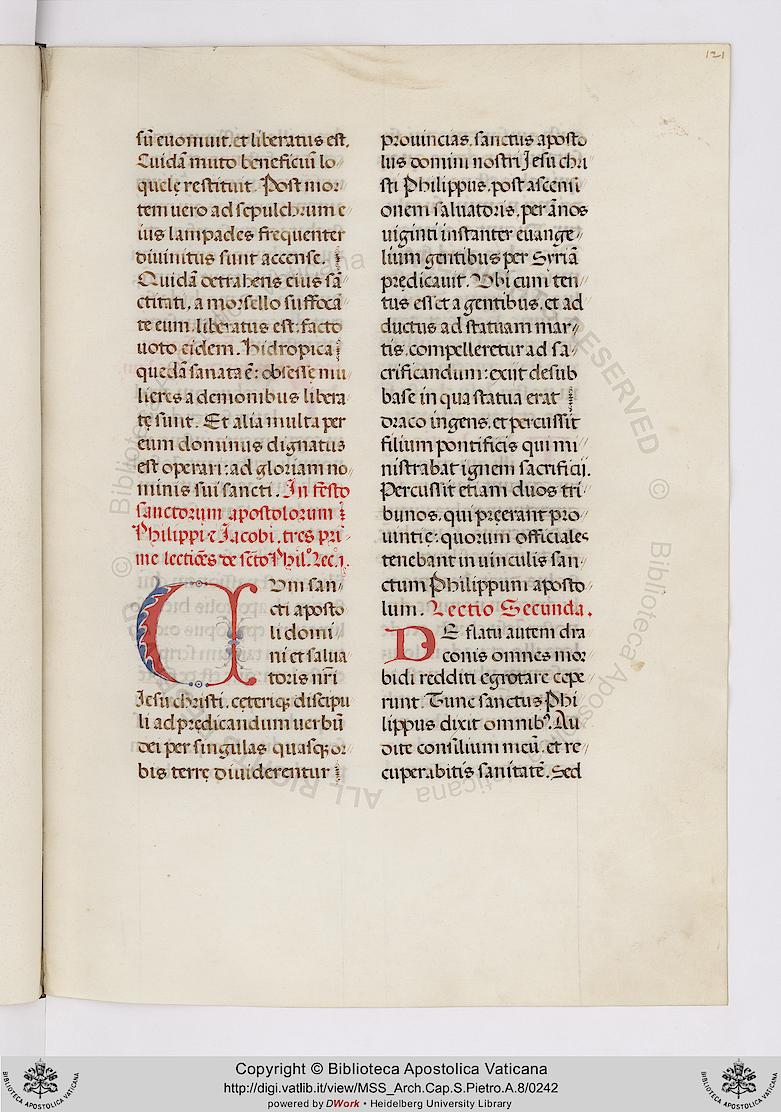 121
sũ euomuit. et liberatus est.
Cuidã muto beneficiũ lo
quelę restituit. Post mor
tem uero ad sepulchrum e
ius lampades frequenter
diuinitus sunt accense.
Quidã detrahens eius sã
ctitati, a morsello suffocã
te eum, liberatus est: facto
uoto eidem. Hidropica
quedã sanata ẽ: obsesse mu
lieres a demonibus libera
tę sunt. Et alia multa per
eum dominus dignatus
est operari: ad gloriam no
minis sui sancti. In festo
sanctorum apostolorum
Philippi ⁊ Jacobi. tres pri
me lectiões de scẽo Phil.º Lec. 1.
CUm san
cti aposto
li domi
ni et salua
toris nr̃i
Jesu christi, ceteriqȝ discipu
li ad prędicandum uerbũ
dei per singulas quasqȝ or
bis terrę diuiderentur
prouincias. sanctus aposto
lus domini nostri Jesu chri
sti Philippus, post ascensi
onem saluatoris, per ãnos
uiginti instanter euange
lium gentibus per Syriã
prędicauit. Vbi cum ten
tus esset a gentibus, et ad
ductus ad statuam mar
tis, compelleretur ad sa
crificandum: exiit de sub
base in qua statua erat
draco ingens, et percussit
filium pontificis qui mi
nistrabat ignem sacrificij.
Percussit etiam duos tri
bunos, qui pręerant pro
uintię: quorum officiales
tenebant in uinculis san
ctum Philippum aposto
lum. Lectio Secunda.
DE flatu autem dra
conis omnes mor
bidi redditi egrotare cepe
runt. Tunc sanctus Phi
lippus dixit omnibꝰ. Au
dite consilium meũ, et re
cuperabitis sanitatẽ. Sed
Copyright © Biblioteca Apostolica Vaticana
http://digi.vatlib.it/view/MSS_Arch.Cap.S.Pietro.A.8/0242
powered by DWork • Heidelberg University Library
BIBLIOTECA APOSTOLICA VATICANA
BIBLIOTECA APOSTOLICA VATICANA